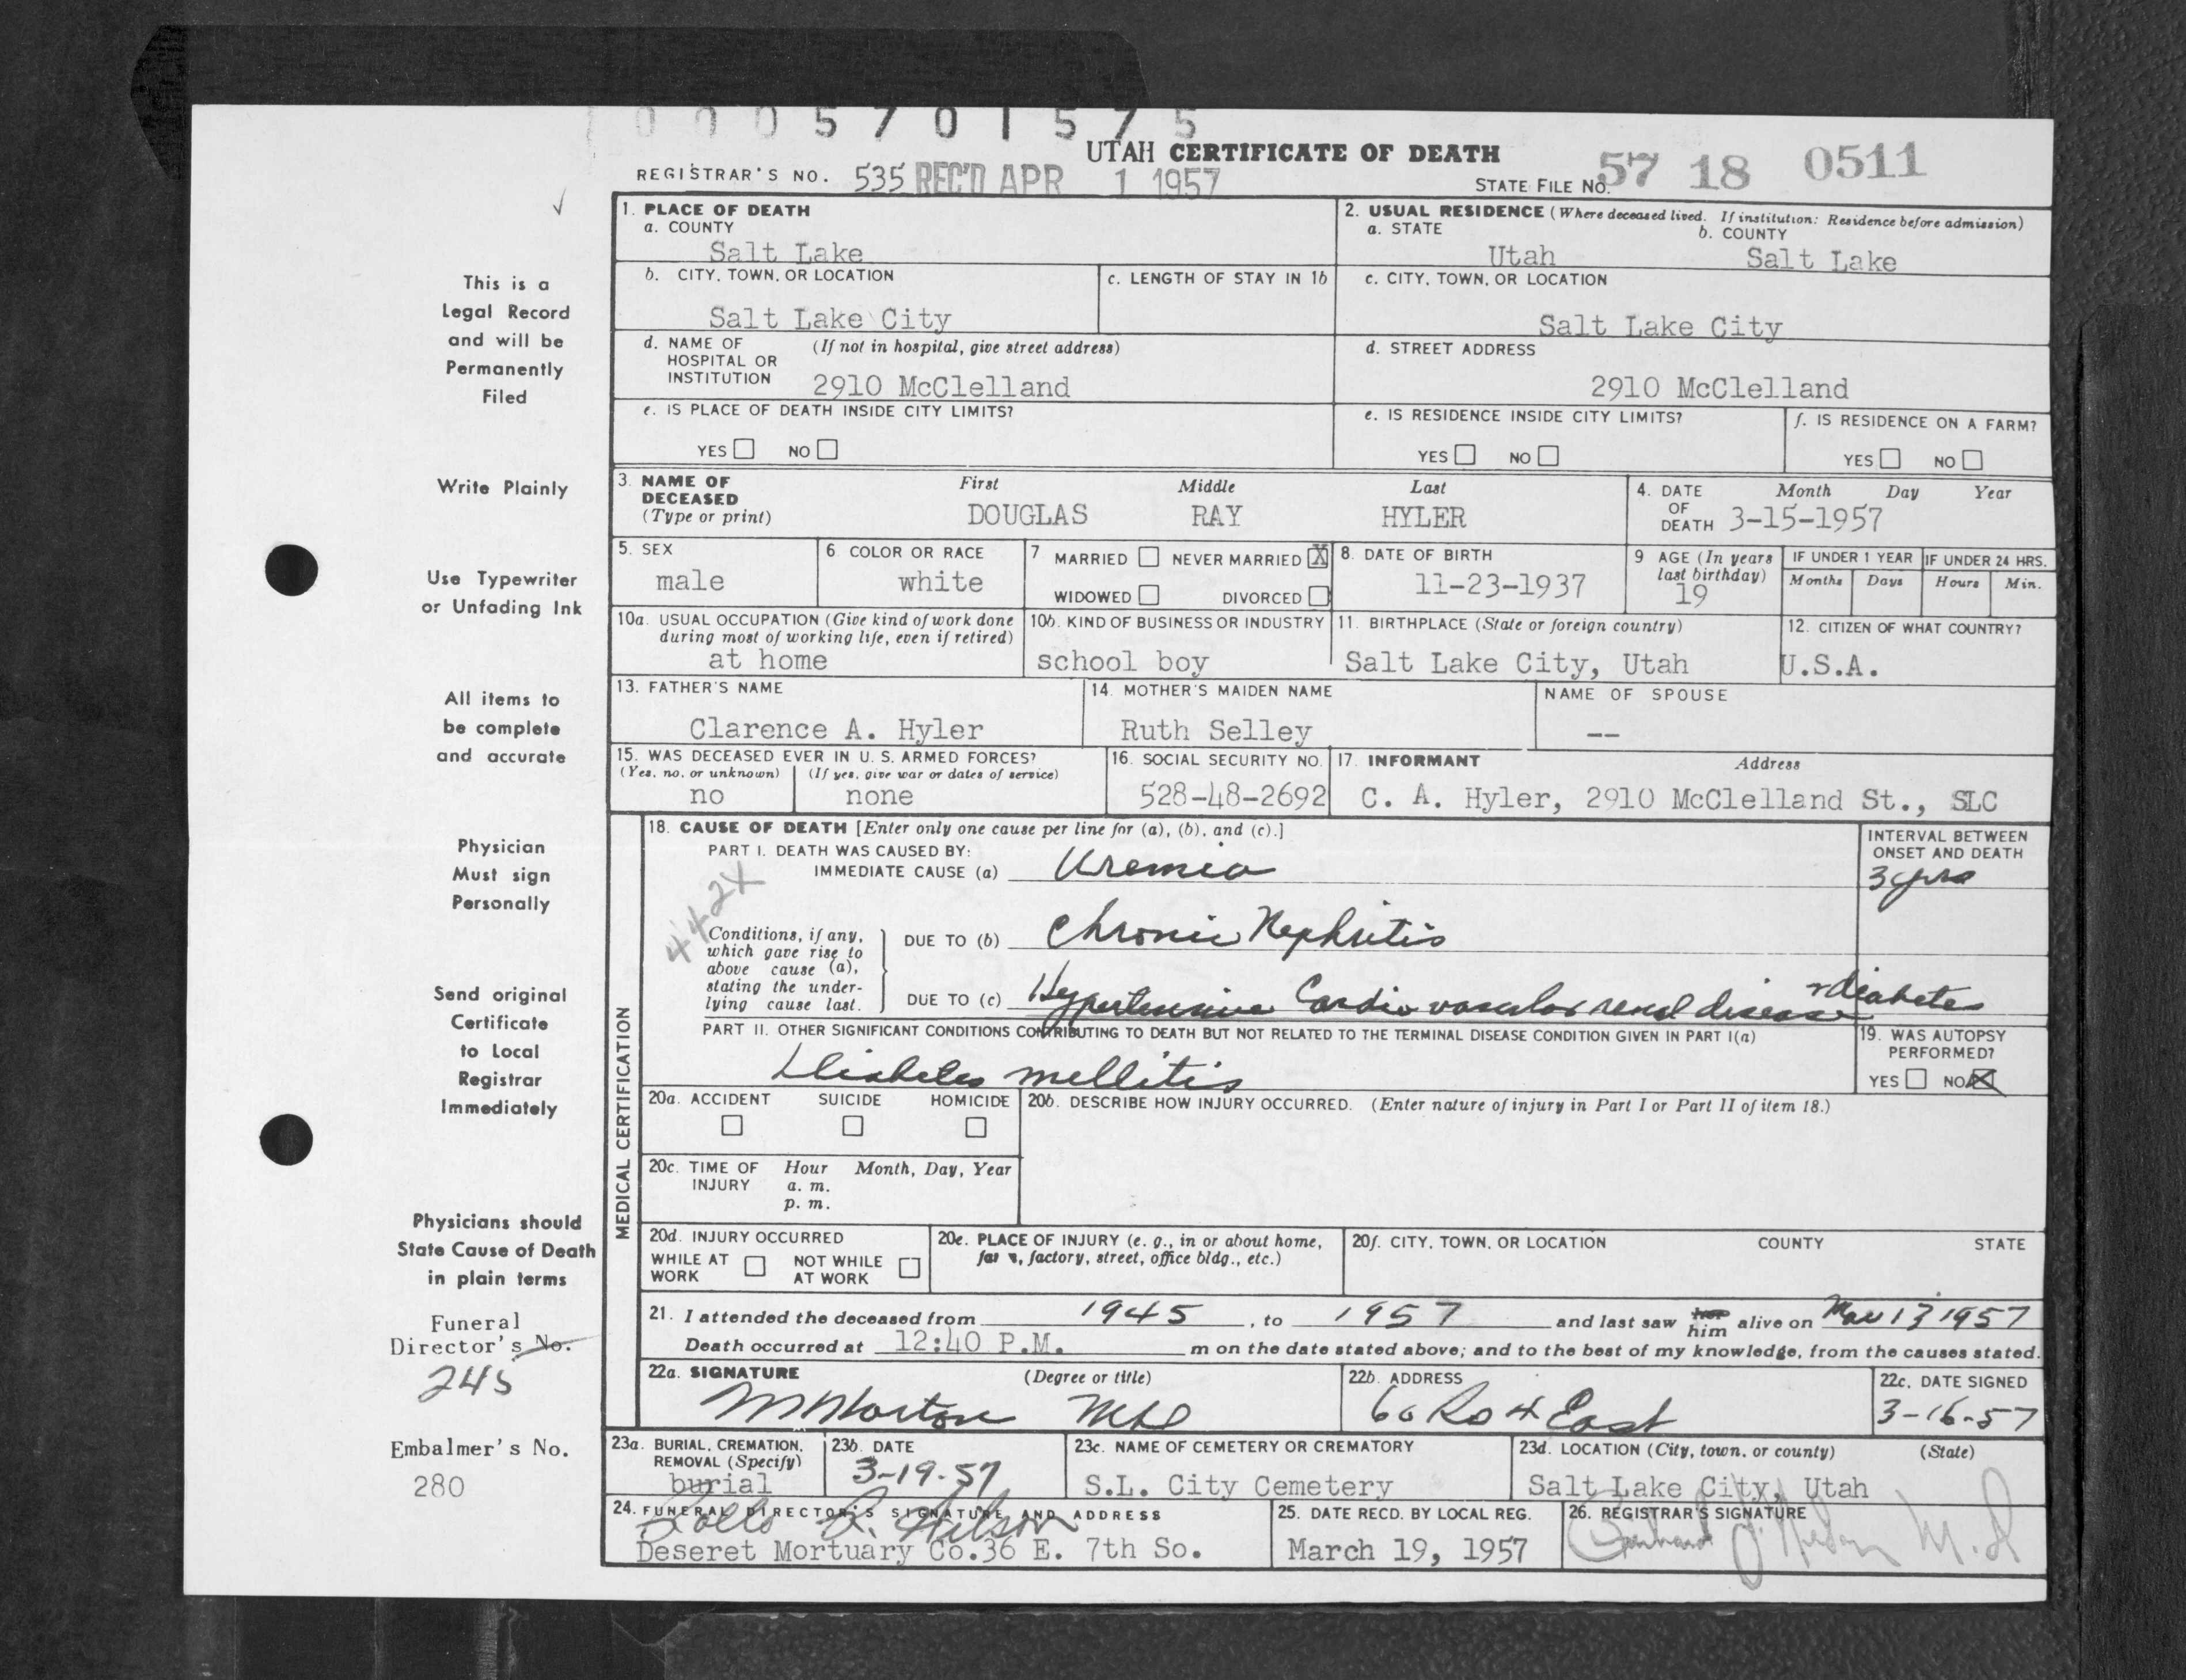 0005701575
UTAH CERTIFICATE OF DEATH
REGISTRAR'S NO. 535 REC'D APR 1 1957
STATE FILE NO. 57 18 0511
This is a
Legal Record
and will be
Permanently
Filed
Write Plainly
Use Typewriter
or Unfading Ink
All items to
be complete
and accurate
Physician
Must sign
Personally
Send original
Certificate
to Local
Registrar
Immediately
Physicians should
State Cause of Death
in plain terms
Funeral
Director's No.
245
Embalmer's No.
280
1. PLACE OF DEATH
a. COUNTY
Salt Lake
2. USUAL RESIDENCE (Where deceased lived. If institution: Residence before admission)
a. STATE b. COUNTY
Utah Salt Lake
b. CITY, TOWN, OR LOCATION
Salt Lake City
c. LENGTH OF STAY IN 1b
c. CITY, TOWN, OR LOCATION
Salt Lake City
d. NAME OF (If not in hospital, give street address)
HOSPITAL OR
INSTITUTION 2910 McClelland
d. STREET ADDRESS
2910 McClelland
e. IS PLACE OF DEATH INSIDE CITY LIMITS?
YES NO
e. IS RESIDENCE INSIDE CITY LIMITS?
YES NO
f. IS RESIDENCE ON A FARM?
YES NO
3. NAME OF First Middle Last
DECEASED
(Type or print) DOUGLAS RAY HYLER
4. DATE Month Day Year
OF
DEATH 3-15-1957
5. SEX
male
6 COLOR OR RACE
white
7 MARRIED NEVER MARRIED X
WIDOWED DIVORCED
8. DATE OF BIRTH
11-23-1937
9 AGE (In years
last birthday)
19
IF UNDER 1 YEAR
Months Days
IF UNDER 24 HRS.
Hours Min.
10a. USUAL OCCUPATION (Give kind of work done
during most of working life, even if retired)
at home
10b. KIND OF BUSINESS OR INDUSTRY
school boy
11. BIRTHPLACE (State or foreign country)
Salt Lake City, Utah
12. CITIZEN OF WHAT COUNTRY?
U.S.A.
13. FATHER'S NAME
Clarence A. Hyler
14. MOTHER'S MAIDEN NAME
Ruth Selley
NAME OF SPOUSE
--
15. WAS DECEASED EVER IN U. S. ARMED FORCES?
(Yes, no, or unknown) (If yes, give war or dates of service)
no none
16. SOCIAL SECURITY NO.
528-48-2692
17. INFORMANT Address
C. A. Hyler, 2910 McClelland St., SLC
MEDICAL CERTIFICATION
18. CAUSE OF DEATH [Enter only one cause per line for (a), (b), and (c).]
PART I. DEATH WAS CAUSED BY:
IMMEDIATE CAUSE (a) Uremia
INTERVAL BETWEEN
ONSET AND DEATH
3 yrs
442X
Conditions, if any,
which gave rise to
above cause (a),
stating the under-
lying cause last.
DUE TO (b) Chronic Nephritis
DUE TO (c) Hypertensive Cardio vascular renal disease + diabetes
PART II. OTHER SIGNIFICANT CONDITIONS CONTRIBUTING TO DEATH BUT NOT RELATED TO THE TERMINAL DISEASE CONDITION GIVEN IN PART I(a)
Diabetes mellitis
19. WAS AUTOPSY
PERFORMED?
YES NO X
20a. ACCIDENT SUICIDE HOMICIDE
20b. DESCRIBE HOW INJURY OCCURRED. (Enter nature of injury in Part I or Part II of item 18.)
20c. TIME OF Hour Month, Day, Year
INJURY a. m.
p. m.
20d. INJURY OCCURRED
WHILE AT NOT WHILE
WORK AT WORK
20e. PLACE OF INJURY (e. g., in or about home,
farm, factory, street, office bldg., etc.)
20f. CITY, TOWN, OR LOCATION COUNTY STATE
21. I attended the deceased from 1945, to 1957 and last saw her him alive on Mar 13 1957
Death occurred at 12:40 P.M. m on the date stated above; and to the best of my knowledge, from the causes stated.
22a. SIGNATURE (Degree or title)
MD
22b. ADDRESS
60 So 4 East
22c. DATE SIGNED
3-16-57
23a. BURIAL, CREMATION,
REMOVAL (Specify)
burial
23b. DATE
3-19-57
23c. NAME OF CEMETERY OR CREMATORY
S.L. City Cemetery
23d. LOCATION (City, town, or county) (State)
Salt Lake City, Utah
24. FUNERAL DIRECTOR'S SIGNATURE AND ADDRESS
Deseret Mortuary Co.36 E. 7th So.
25. DATE RECD. BY LOCAL REG.
March 19, 1957
26. REGISTRAR'S SIGNATURE
M.D